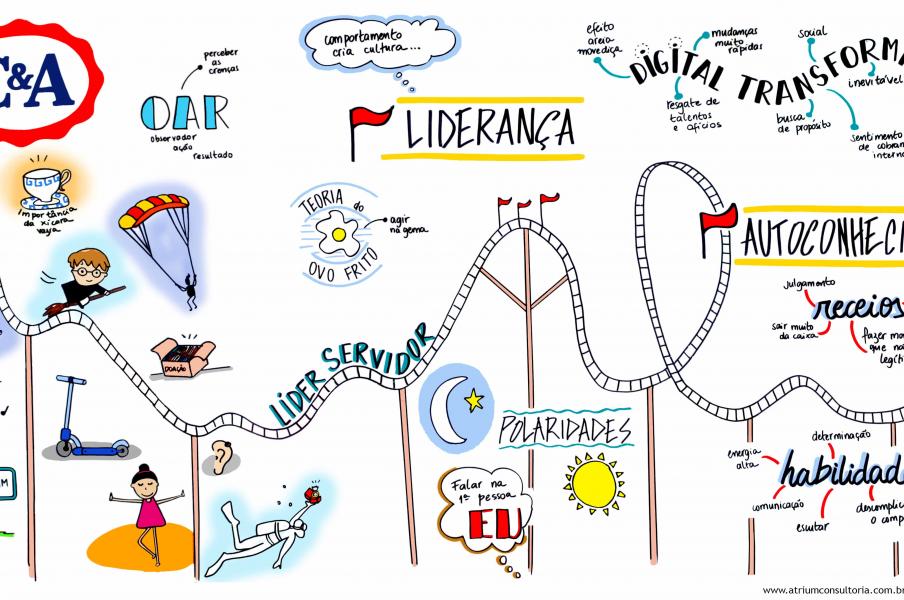 &A
perceber
as
crenças
OAR
observador
ação
resultado
comportamento
cria cultura...
LIDERANÇA
efeito
areia
movediça
mudanças
muito
rápidas
DIGITAL
resgate de
talentos
e ofícios
social
TRANSFORMA
inevitável
busca
de propósito
sentimento
de cobran
intern
Importância
da xícara
vazia
TEORIA do
OVO FRITO
agir
na gema
AUTOCONHECI
julgamento
receios
sair muito
da caixa
fazer ma
que não
legít
DOAÇÃO
LÍDER SERVIDOR
POLARIDADES
Falar na
1ª pessoa
EU
determinação
energia
alta
habilidad
comunicação
escutar
descomplic
o camp
www.atriumconsultoria.com.br